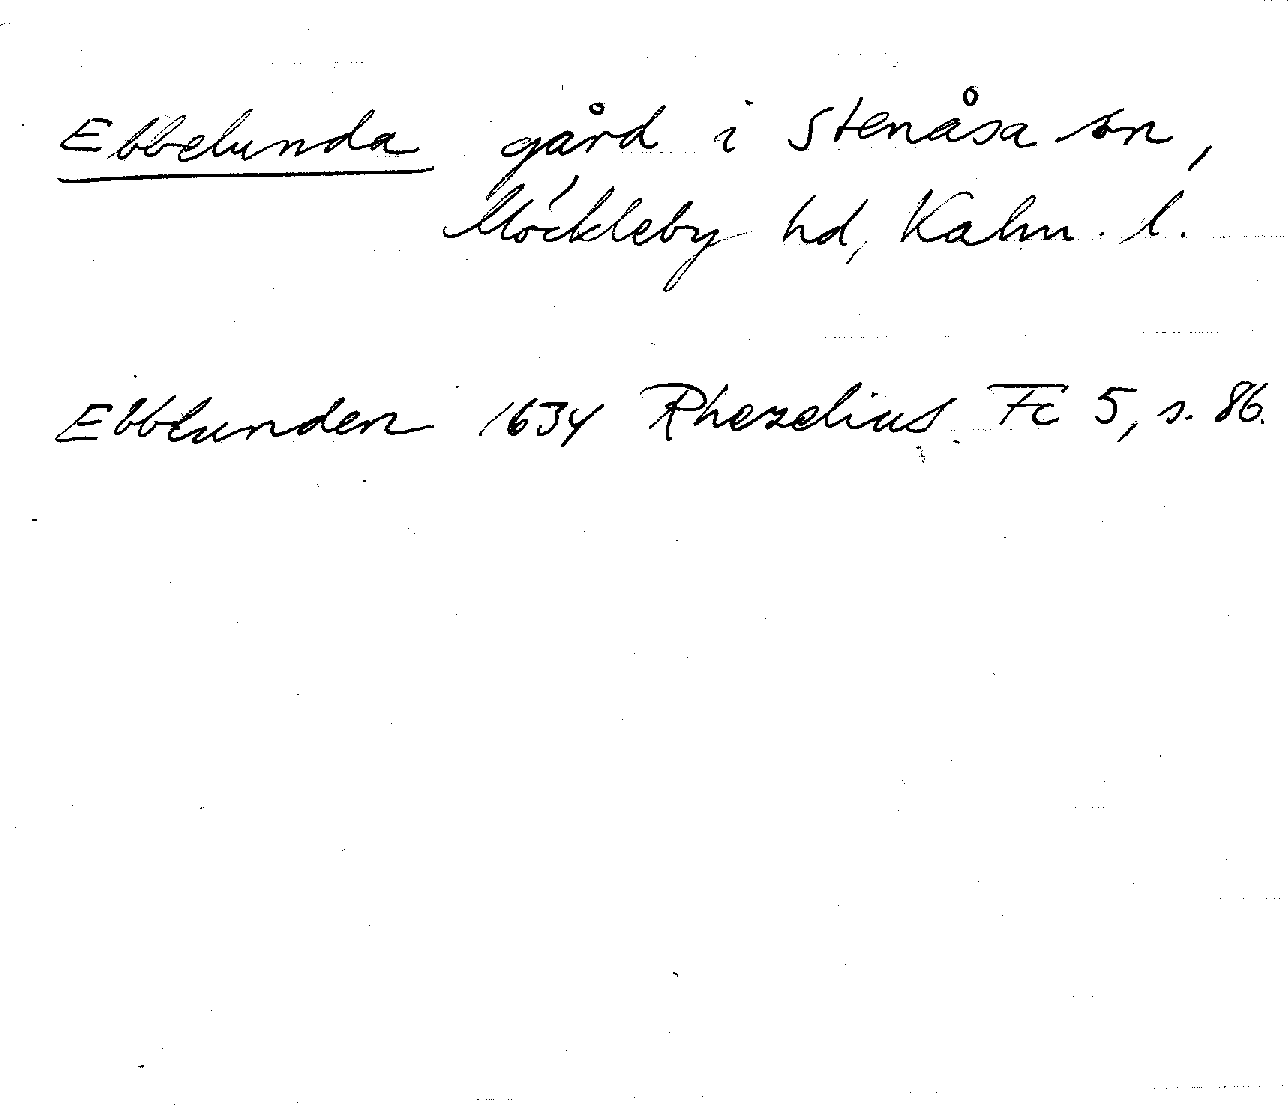 Ebbelunda gård i Stenåsa sn,
Möckleby hd, Kalm. l.
Ebblunden 1634 Rhezelius Fc 5, s. 86.